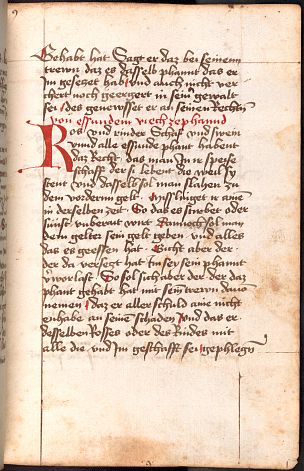 Gehabt hat Sagt er daz bei seinenn
trewn daz es dasselb phannt das er
Im gesetzt hab Und auch nicht ver
chert noch geergert in seiner gewalt
sei Des genewsset er an seinen Rechtn
von essundem viech ze phannd
Ros und rinder Schaf und swein
unnd alle essunde phant habent
daz Recht das man In ir speise
schaff der si lebent die weil sy
stent und dasselb sol man slahen zu
dem vorderm gelt
in derselben zeit So das es stirbet oder
sünst unberait wirt Dannoch sol man
dem gelter sein gelt geben und alles
das es geessen hat aber der
der da versetzt hat umb sein phannt
verworlost So sol sich aber der der daz
phant gehabt hat mit seinen trewen davon
nemen daz er aller schuld ane nicht
enhabe an seinem schaden Und das er
desselben Rosses oder des Rindes mit
alle die und Im geschafft sei gephlegn